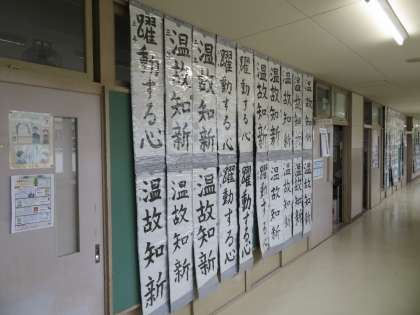 躍動する心
温故知新
温故知新
躍動する心
躍動する心
温故知新
温故知新
温故知新
温故知新
温故知新
温故知新
温故知新
温故知新
躍動する心
躍動する心
躍動する心
温故知新
温故知新
温故知新
温故知新